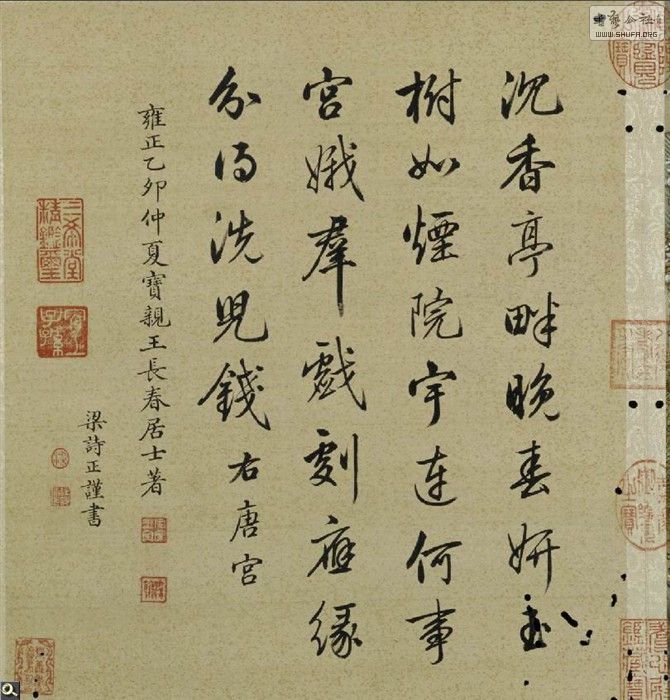 沉香亭畔晚春妍玉
樹如煙院宇連何事
宮娥羣戲劇應緣
分得洗兒錢右唐宮
雍正乙卯仲夏寶親王長春居士著
梁詩正謹書
三希堂精鑑璽
宜子孫
WWW.SHUFA.ORG